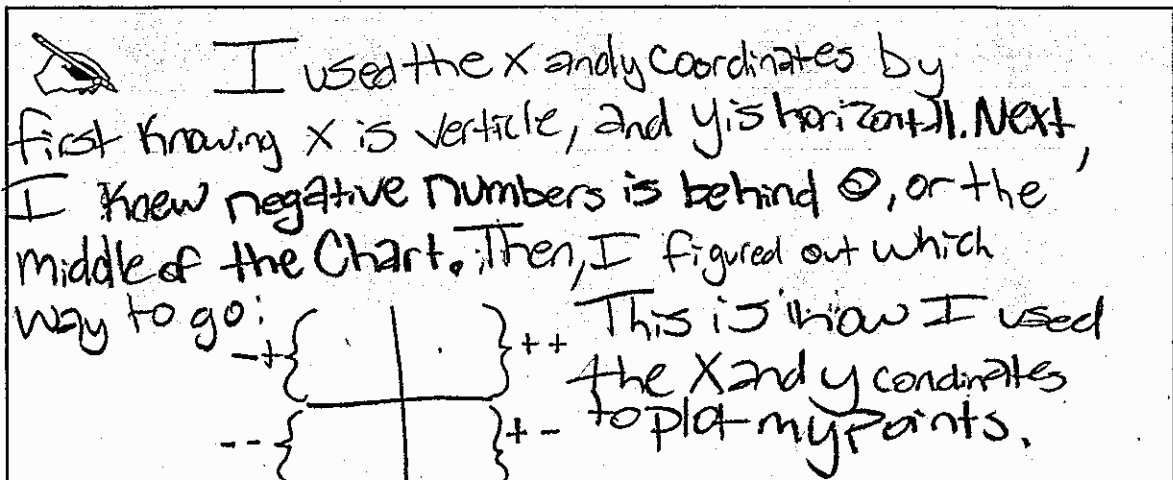 I used the x and y coordinates by
first knowing x is verticle, and y is horizontal. Next,
I knew negative numbers is behind 0, or the
middle of the Chart. Then, I figured out which
way to go:
-+ ++ This is how I used
the X and y condinates
-- +- to plot my points.